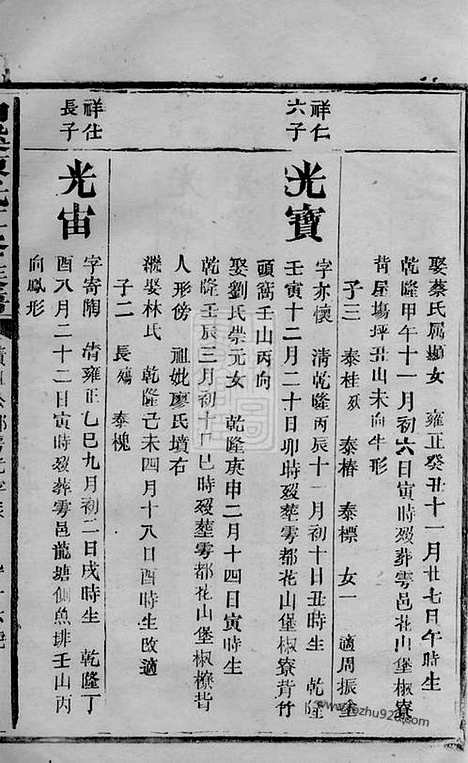 娶蔡氏属顯女 雍正癸丑十一月廿七日午時生
乾隆甲午十一月初六日寅時歿葬雩邑花山堡椒寮
背屋塲坪丑山未向牛形
子三 泰桂歿 泰椿 泰標 女一 適周振
祥仁六子
光寶
字亦懷 清乾隆丙辰十一月初十日丑時生 乾隆
壬寅十二月二十日卯時歿塟雩都花山堡椒寮背竹
頭窩壬山丙向
娶劉氏崇元女 乾隆庚申二月十四日寅時生
乾隆壬辰三月初十日巳時歿塟雩都花山堡椒橑背
人形傍 祖妣廖氏墳右
娶林氏 乾隆己未四月十八日酉時生改適
子二 長殤 泰槐
祥仕長子
光宙
字寄陶 清雍正乙巳九月初二日戌時生 乾隆丁
酉八月二十二日寅時歿葬雩邑龍塘側魚排壬山丙
向鳳形
gzhu928.com